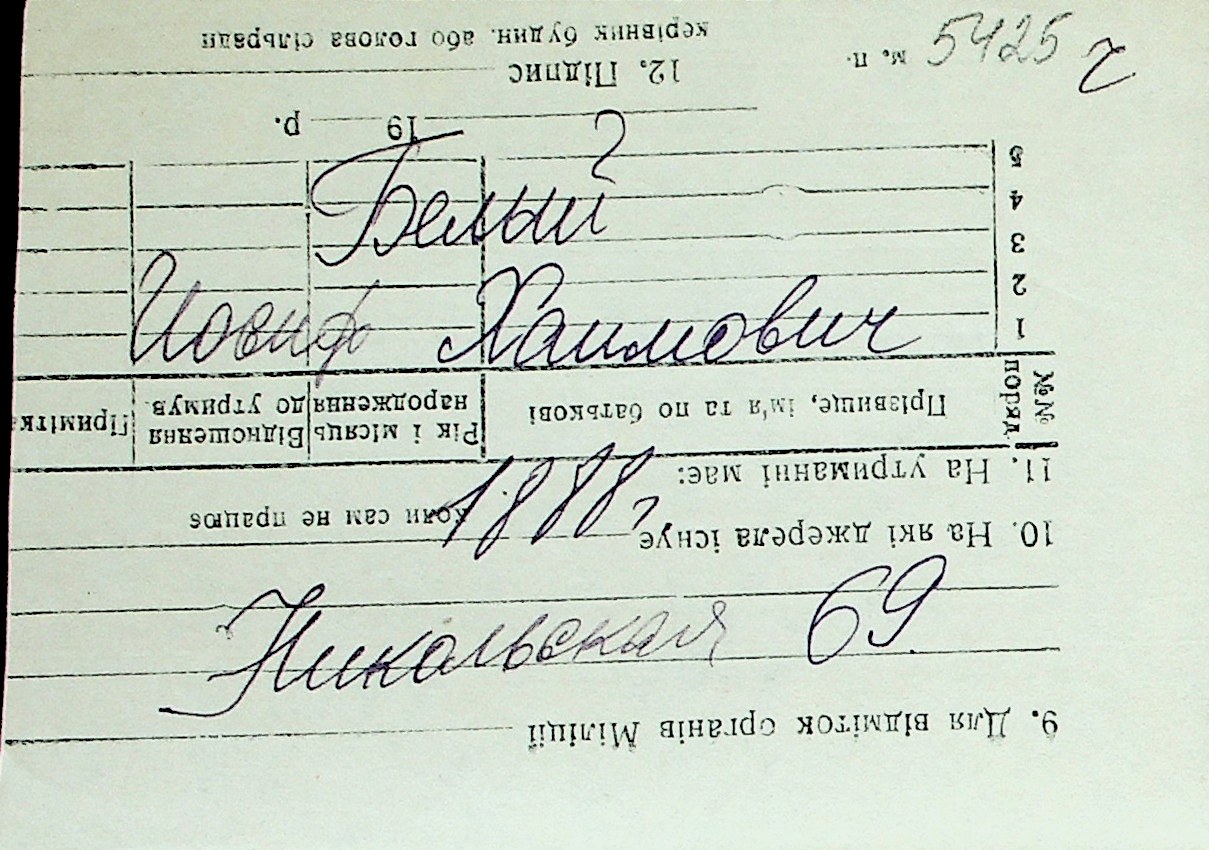 5425 г
Белый
Иосиф Хаимович
1888 г
Никольская 69.
9. Для відміток органів Міліції
10. На які джерела існує
коли сам не працює
11. На утриманні має:
№№ поряд. Прізвище, ім'я та по батькові Рік і місяць народження Відношення до утримув. Примітка
1
2
3
4
5
19 р.
12. Підпис
м. п. керівник будин. або голова сільради